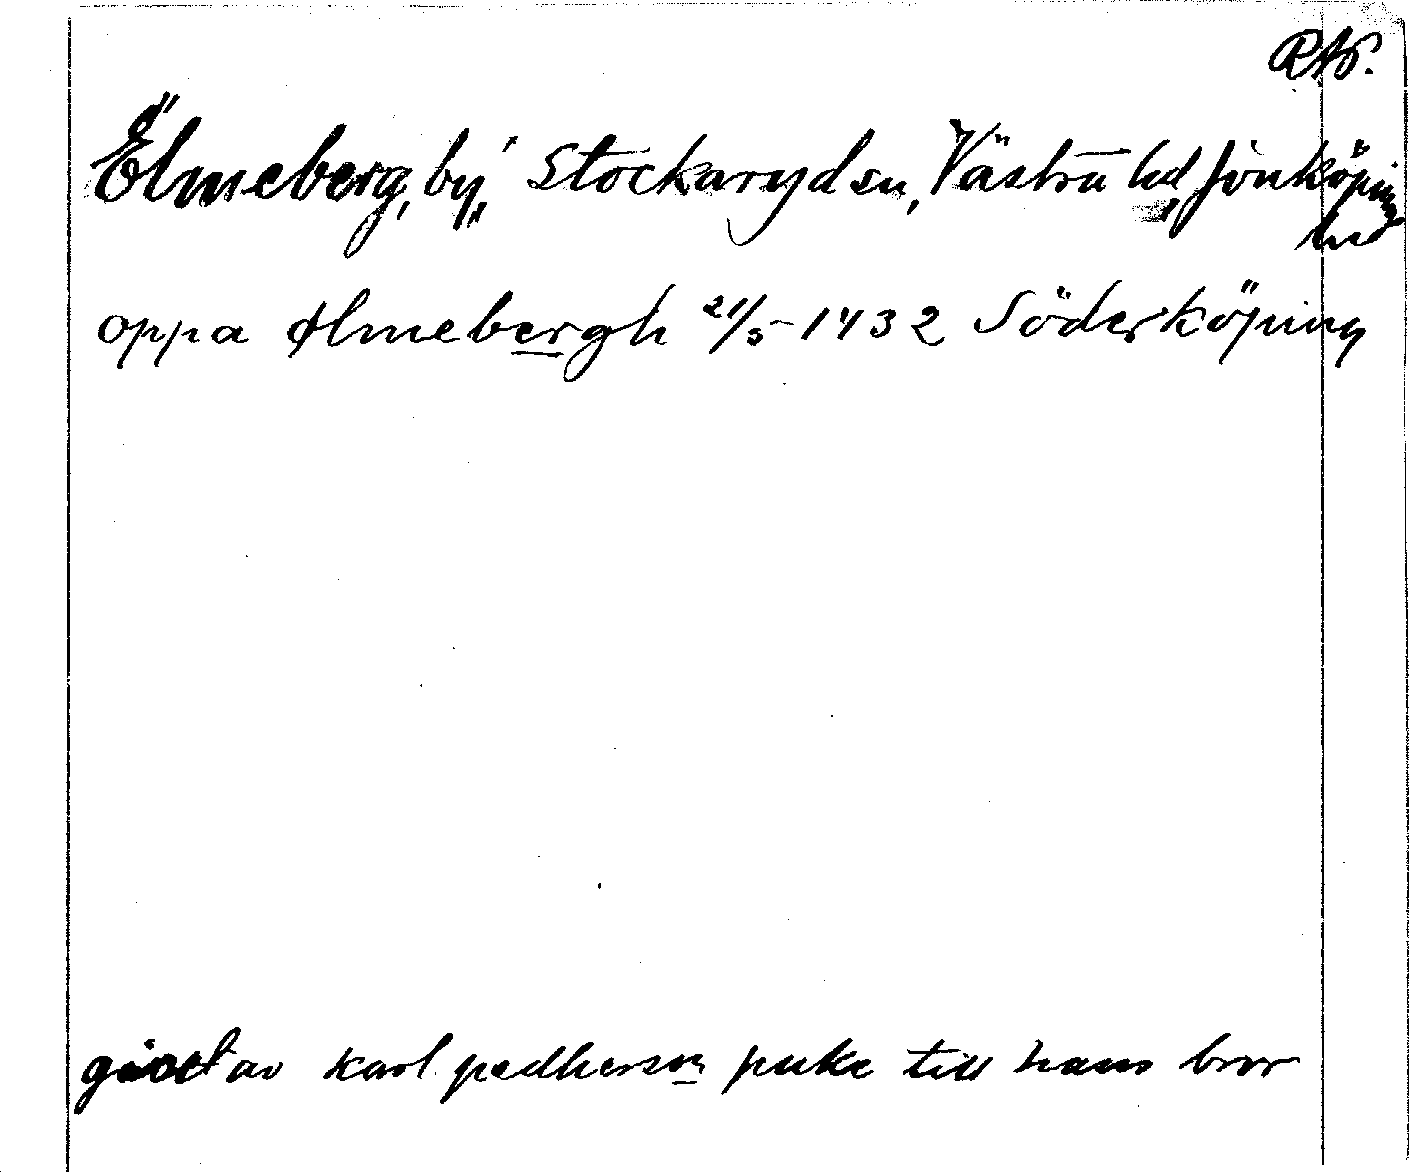 RAP.
Älmeberg, by, Stockaryd sn, Västra hd, Jönköpings
län
oppa ælmebergh 21/5-1432 Söderköping
givet av karl pedherson puke till hans bror